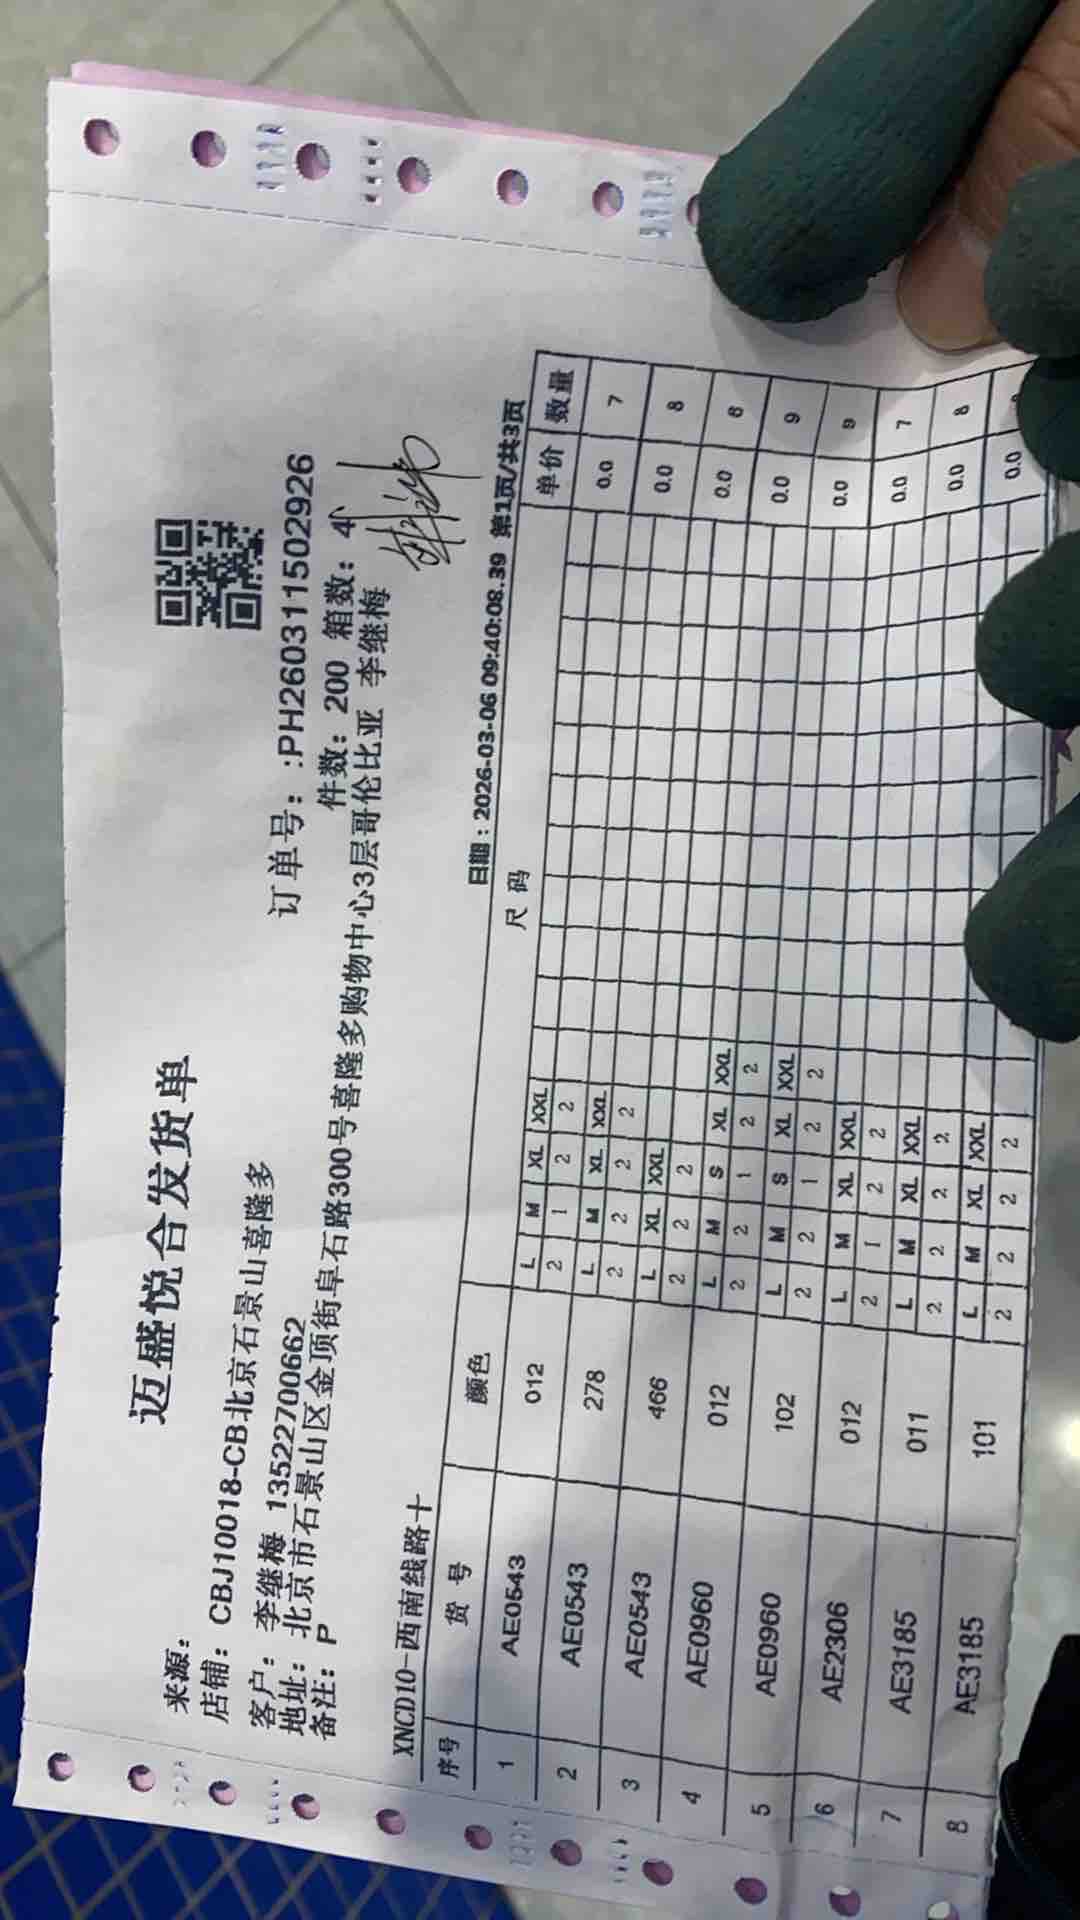 迈盛悦合发货单
来源:
店铺: CBJ10018-CB北京石景山喜隆多 订单号: :PH26031150 2926
客户: 李继梅 13522700662 件数: 200 箱数: 4
地址: 北京市石景山区金顶街阜石路300号喜隆多购物中心3层哥伦比亚 李继梅
备注: P
XNCD10-西南线路十 日期: 2026-03-06 09:40:08.39 第1页/共3页
序号 货号 颜色 尺码 单价 数量
1 AE0543 012 L M XL XXL 0.0 7
2 1 2 2
2 AE0543 278 L M XL XXL 0.0 8
2 2 2 2
3 AE0543 466 L XL XXL 0.0 6
2 2 2
4 AE0960 012 L M S XL XXL 0.0 9
2 2 1 2 2
5 AE0960 102 L M S XL XXL 0.0 9
2 2 1 2 2
6 AE2306 012 L M XL XXL 0.0 7
2 1 2 2
7 AE3185 011 L M XL XXL 0.0 8
2 2 2 2
8 AE3185 101 L M XL XXL 0.0
2 2 2 2